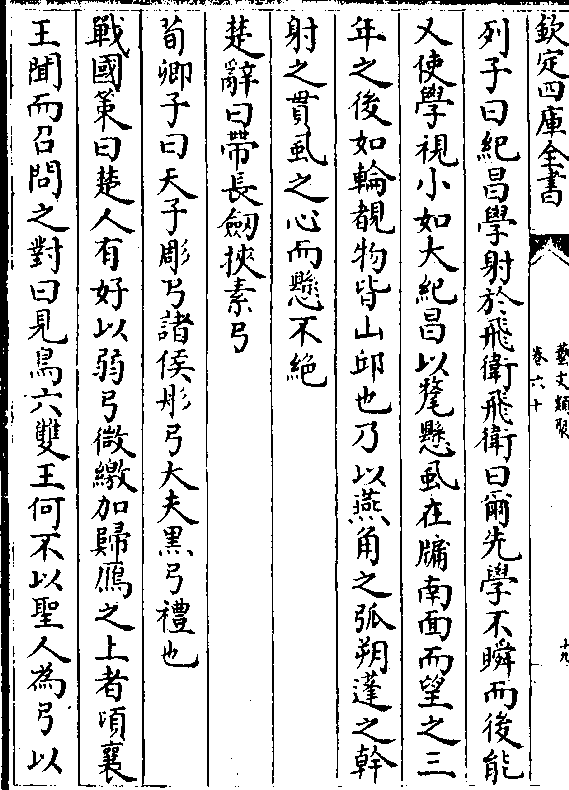 欽定四庫全書
藝文類聚
卷六十
十九
列子曰紀昌學射於飛衛飛衛曰爾先學不瞬而後能
又使學視小如大紀昌以氂懸虱在牖南面而望之三
年之後如輪覩物皆山邱也乃以燕角之弧朔蓬之幹
射之貫虱之心而懸不絶
楚辭曰帶長劒挾素弓
荀卿子曰天子彫弓諸侯彤弓大夫黑弓禮也
戰國策曰楚人有好以弱弓微繳加歸鴈之上者頃襄
王聞而召問之對曰見鳥六雙王何不以聖人為弓以